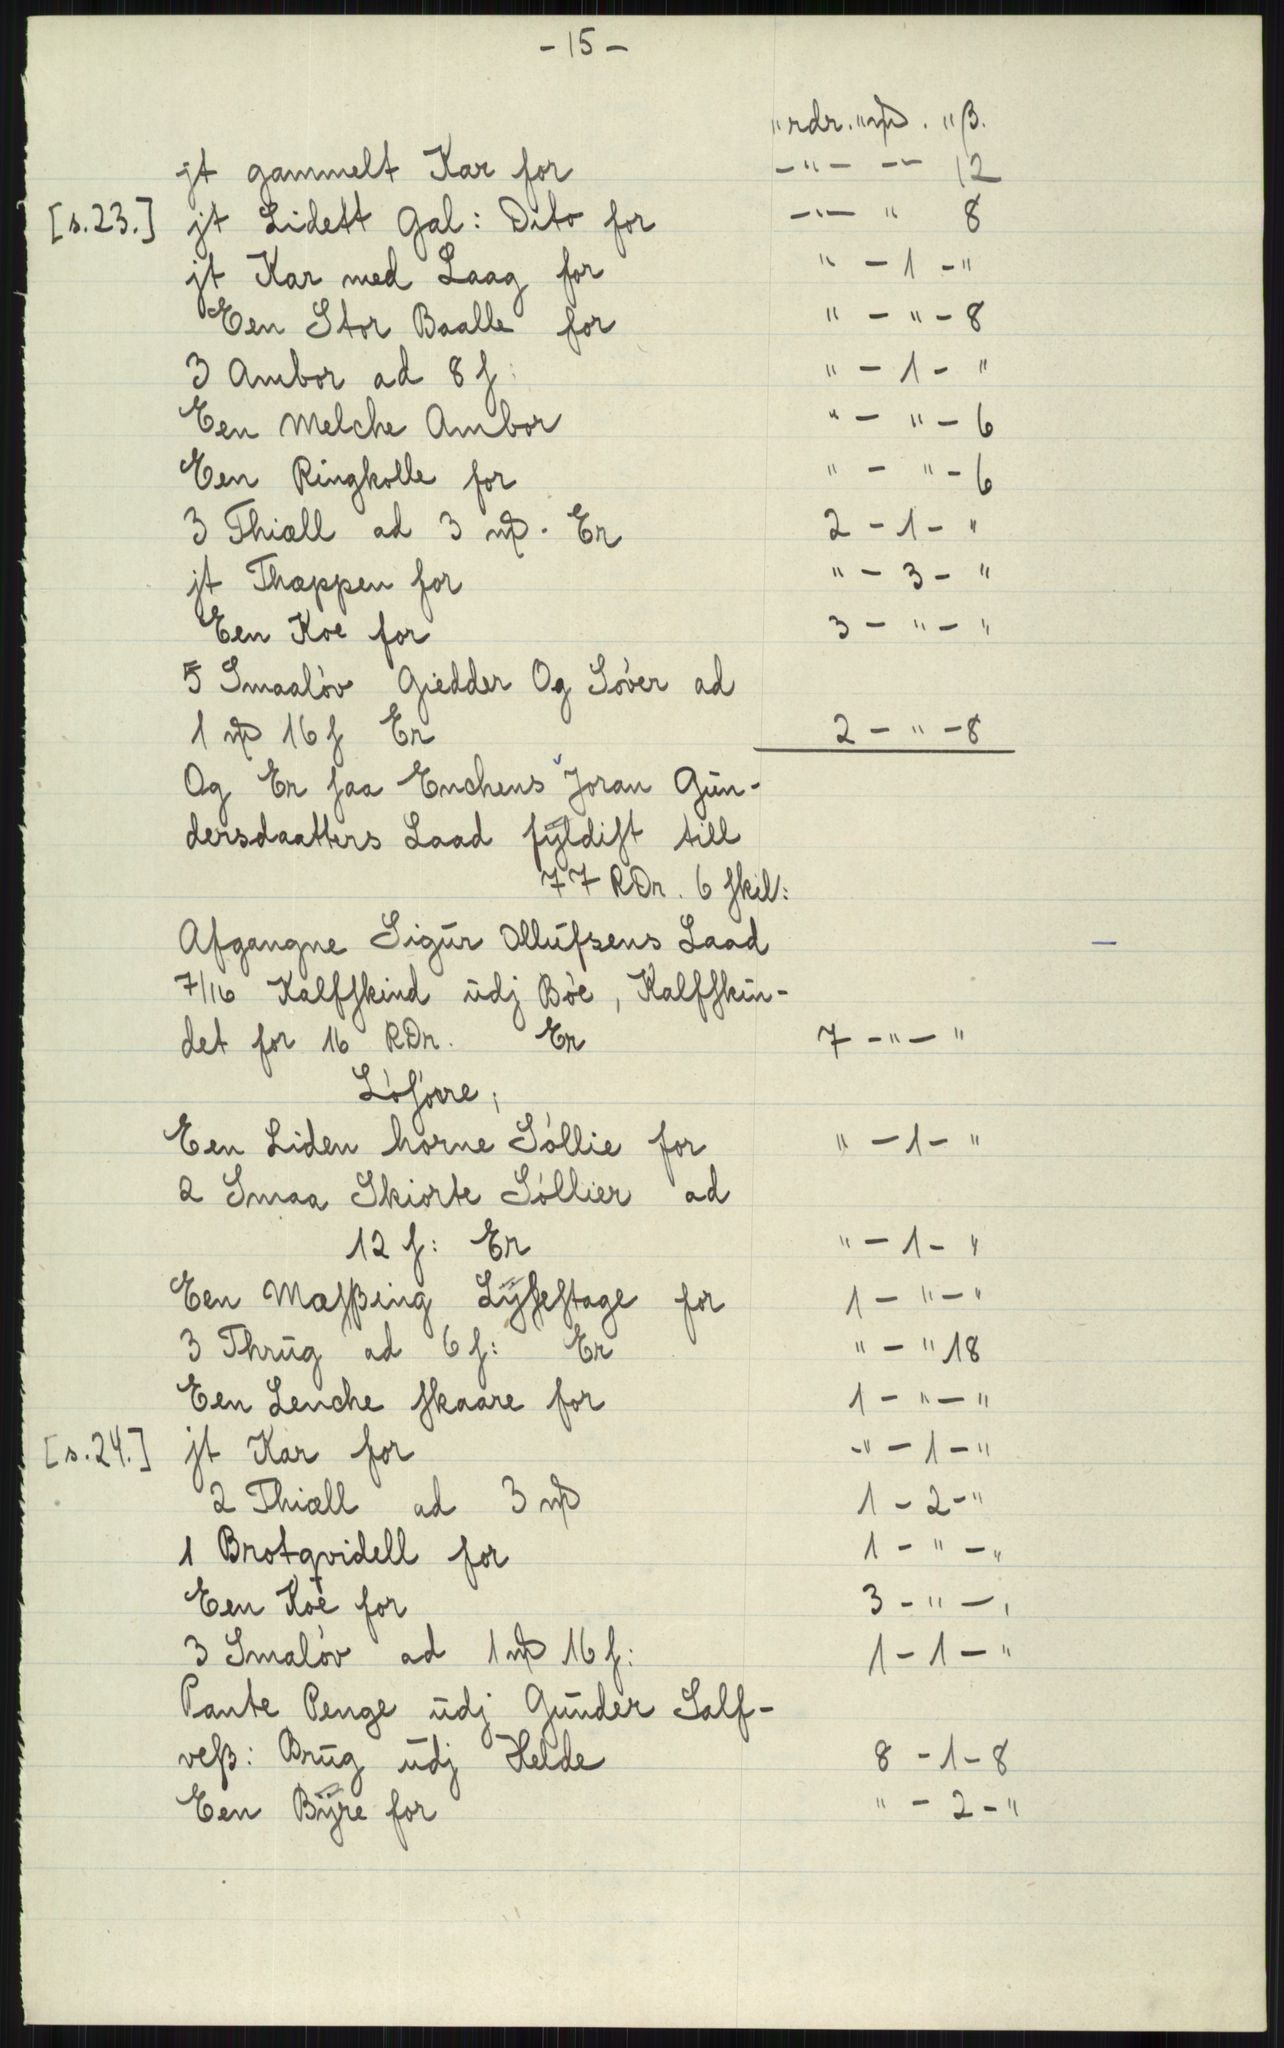 - 15 -
" rdr. " mp . " β.
jt gammelt Kar for - " - -- 12
[s. 23.] jt Lidett Gal: Dito for - " - " 8
jt Kar med Laag for " - 1 - "
Een Stor Baalle for " - " - 8
3 Ambor ad 8 ſ: " - 1 - "
Een Melche Ambor " - " - 6
Een Ringkolle for " - " - 6
3 Thiæll ad 3 mp. Er 2 - 1 - "
jt Thæppen for " - 3 - "
Een Koe for 3 - " - "
5 Smaaløv Giedder Og Søver ad
1 mp 16 ſ Er 2 - " - 8
Og Er ſaa Enchens Joran Gun-
dersdaatters Laad fÿldiſt till
77 RDr. 6 ſkil:
Afgangne Sigur Ollufsens Laad
7/16 Kalfſkind udj Bøe, Kalfſkin-
det for 16 RDr. Er 7 - " - "
Løſøre,
Een Liden horne Søllie for " - 1 - "
2 Smaa Skiorte Søllier ad
12 ſ: Er " - 1 - "
Een Mæſßing Lÿſeſtage for 1 - " - "
3 Thrug ad 6 ſ: Er " - " 18
Een Lenche ſkaare for 1 - " - "
[s. 24.] jt Kar for " - 1 - "
2 Thiæll ad 3 mp 1 - 2 - "
1 Brotqvidell for 1 - " - "
Een Koe for 3 - " - "
3 Smaløv ad 1 mp 16 ſ: 1 - 1 - "
Pante Penge udj Gunder Salf-
veß: Brug udj Helde 8 - 1 - 8
Een Bÿre for " - 2 - "